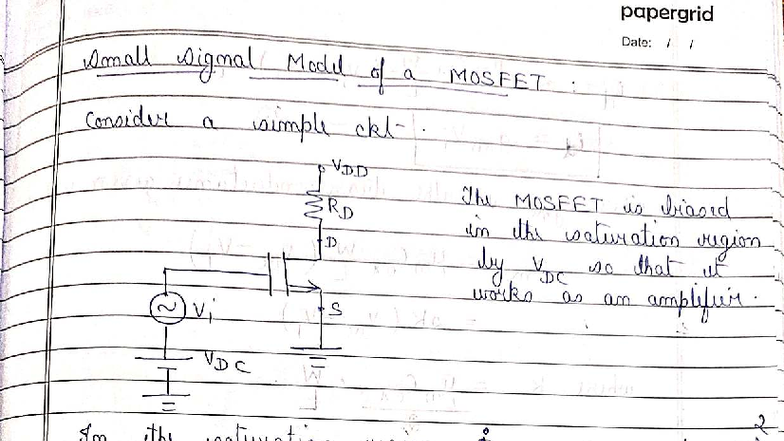 papergrid
Date: / /
Small Signal Model of a MOSFET :
Consider a simple ckt-.
VDD
RD
D
The MOSFET is biased
in the saturation region
by VDC so that it
works as an amplifier.
S
Vi
VDC
In the saturation
2